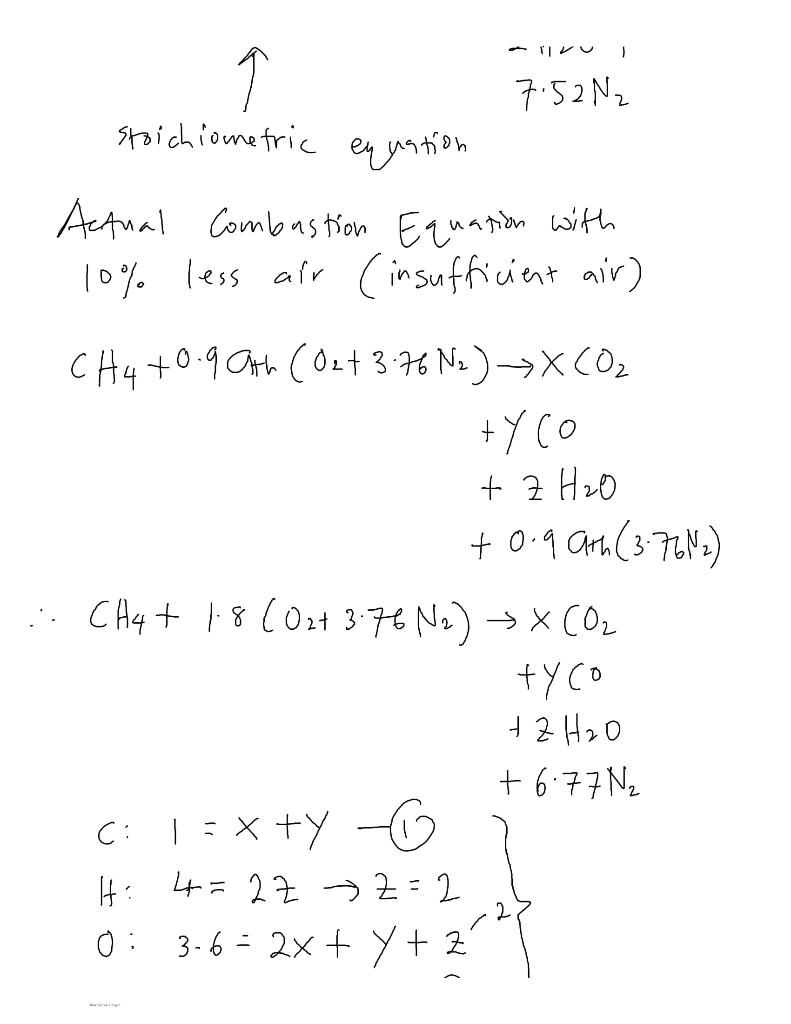 7.52N₂
Stoichiometric equation
Actual Combustion Equation with
10% less air (insufficient air)
CH₄ + 0.9 ath (O₂ + 3.76 N₂) → X CO₂
+ Y CO
+ Z H₂O
+ 0.9 ath (3.76N₂)
∴ CH₄ + 1.8 (O₂ + 3.76 N₂) → X CO₂
+ Y CO
+ Z H₂O
+ 6.77N₂
C: 1 = X + Y —①
H: 4 = 2Z → Z = 2
O: 3.6 = 2X + Y + Z 2